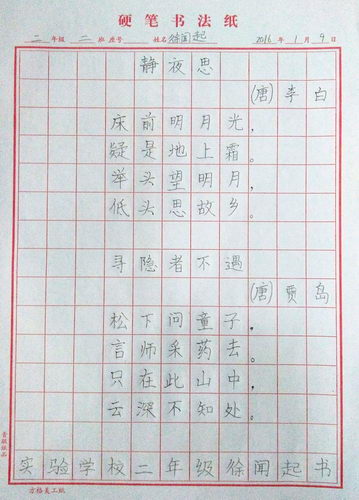 硬笔书法纸
二年级 二班 座号 姓名 徐闻起 2016年1月9日
静夜思
(唐)李白
床前明月光，
疑是地上霜。
举头望明月，
低头思故乡。
寻隐者不遇
(唐)贾岛
松下问童子，
言师采药去。
只在此山中，
云深不知处。
实验学校二年级徐闻起书
方格美工纸